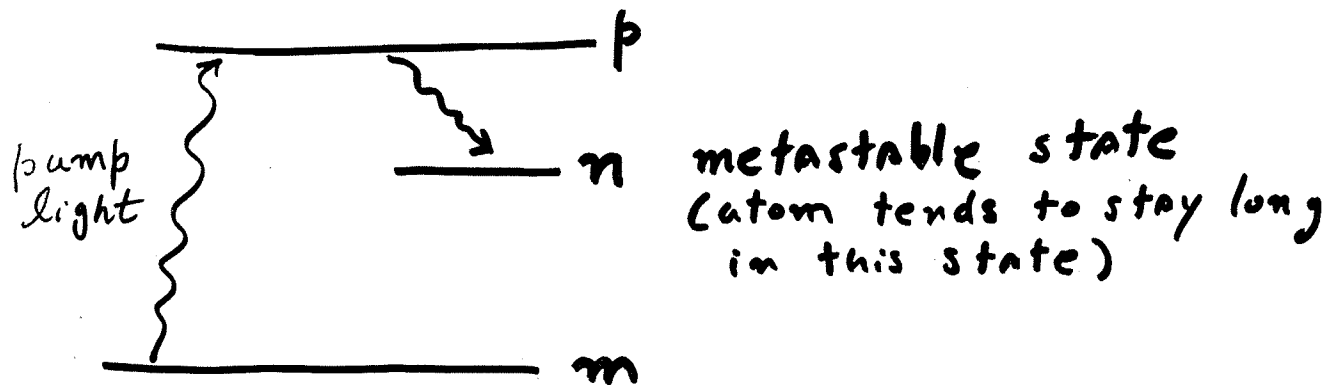 p
pump
light
n
metastable state
(atom tends to stay long
in this state)
m